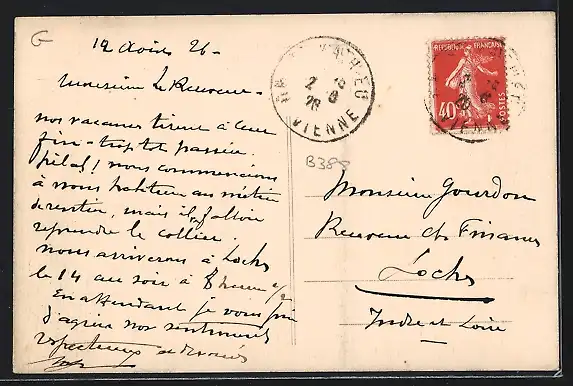 G
12 Août 26 -
Monsieur Le Receveur -
nos vacances tirent à leur
fin - trop tôt passées.
hélas! nous commencions
à nous habituer au métier
de rentier, mais il falloir
reprendre le collier.
nous arriverons à Loches
le 14 au soir à 8 heures 1/2
En attendant je vous prie
d'agréer nos sentiments
respectueux et dévoués
VIENNE
RÉPUBLIQUE FRANÇAISE
40 c
POSTES
VIENNE
B388
Monsieur Gourdon
Receveur des Finances
Loches
Indre et Loire